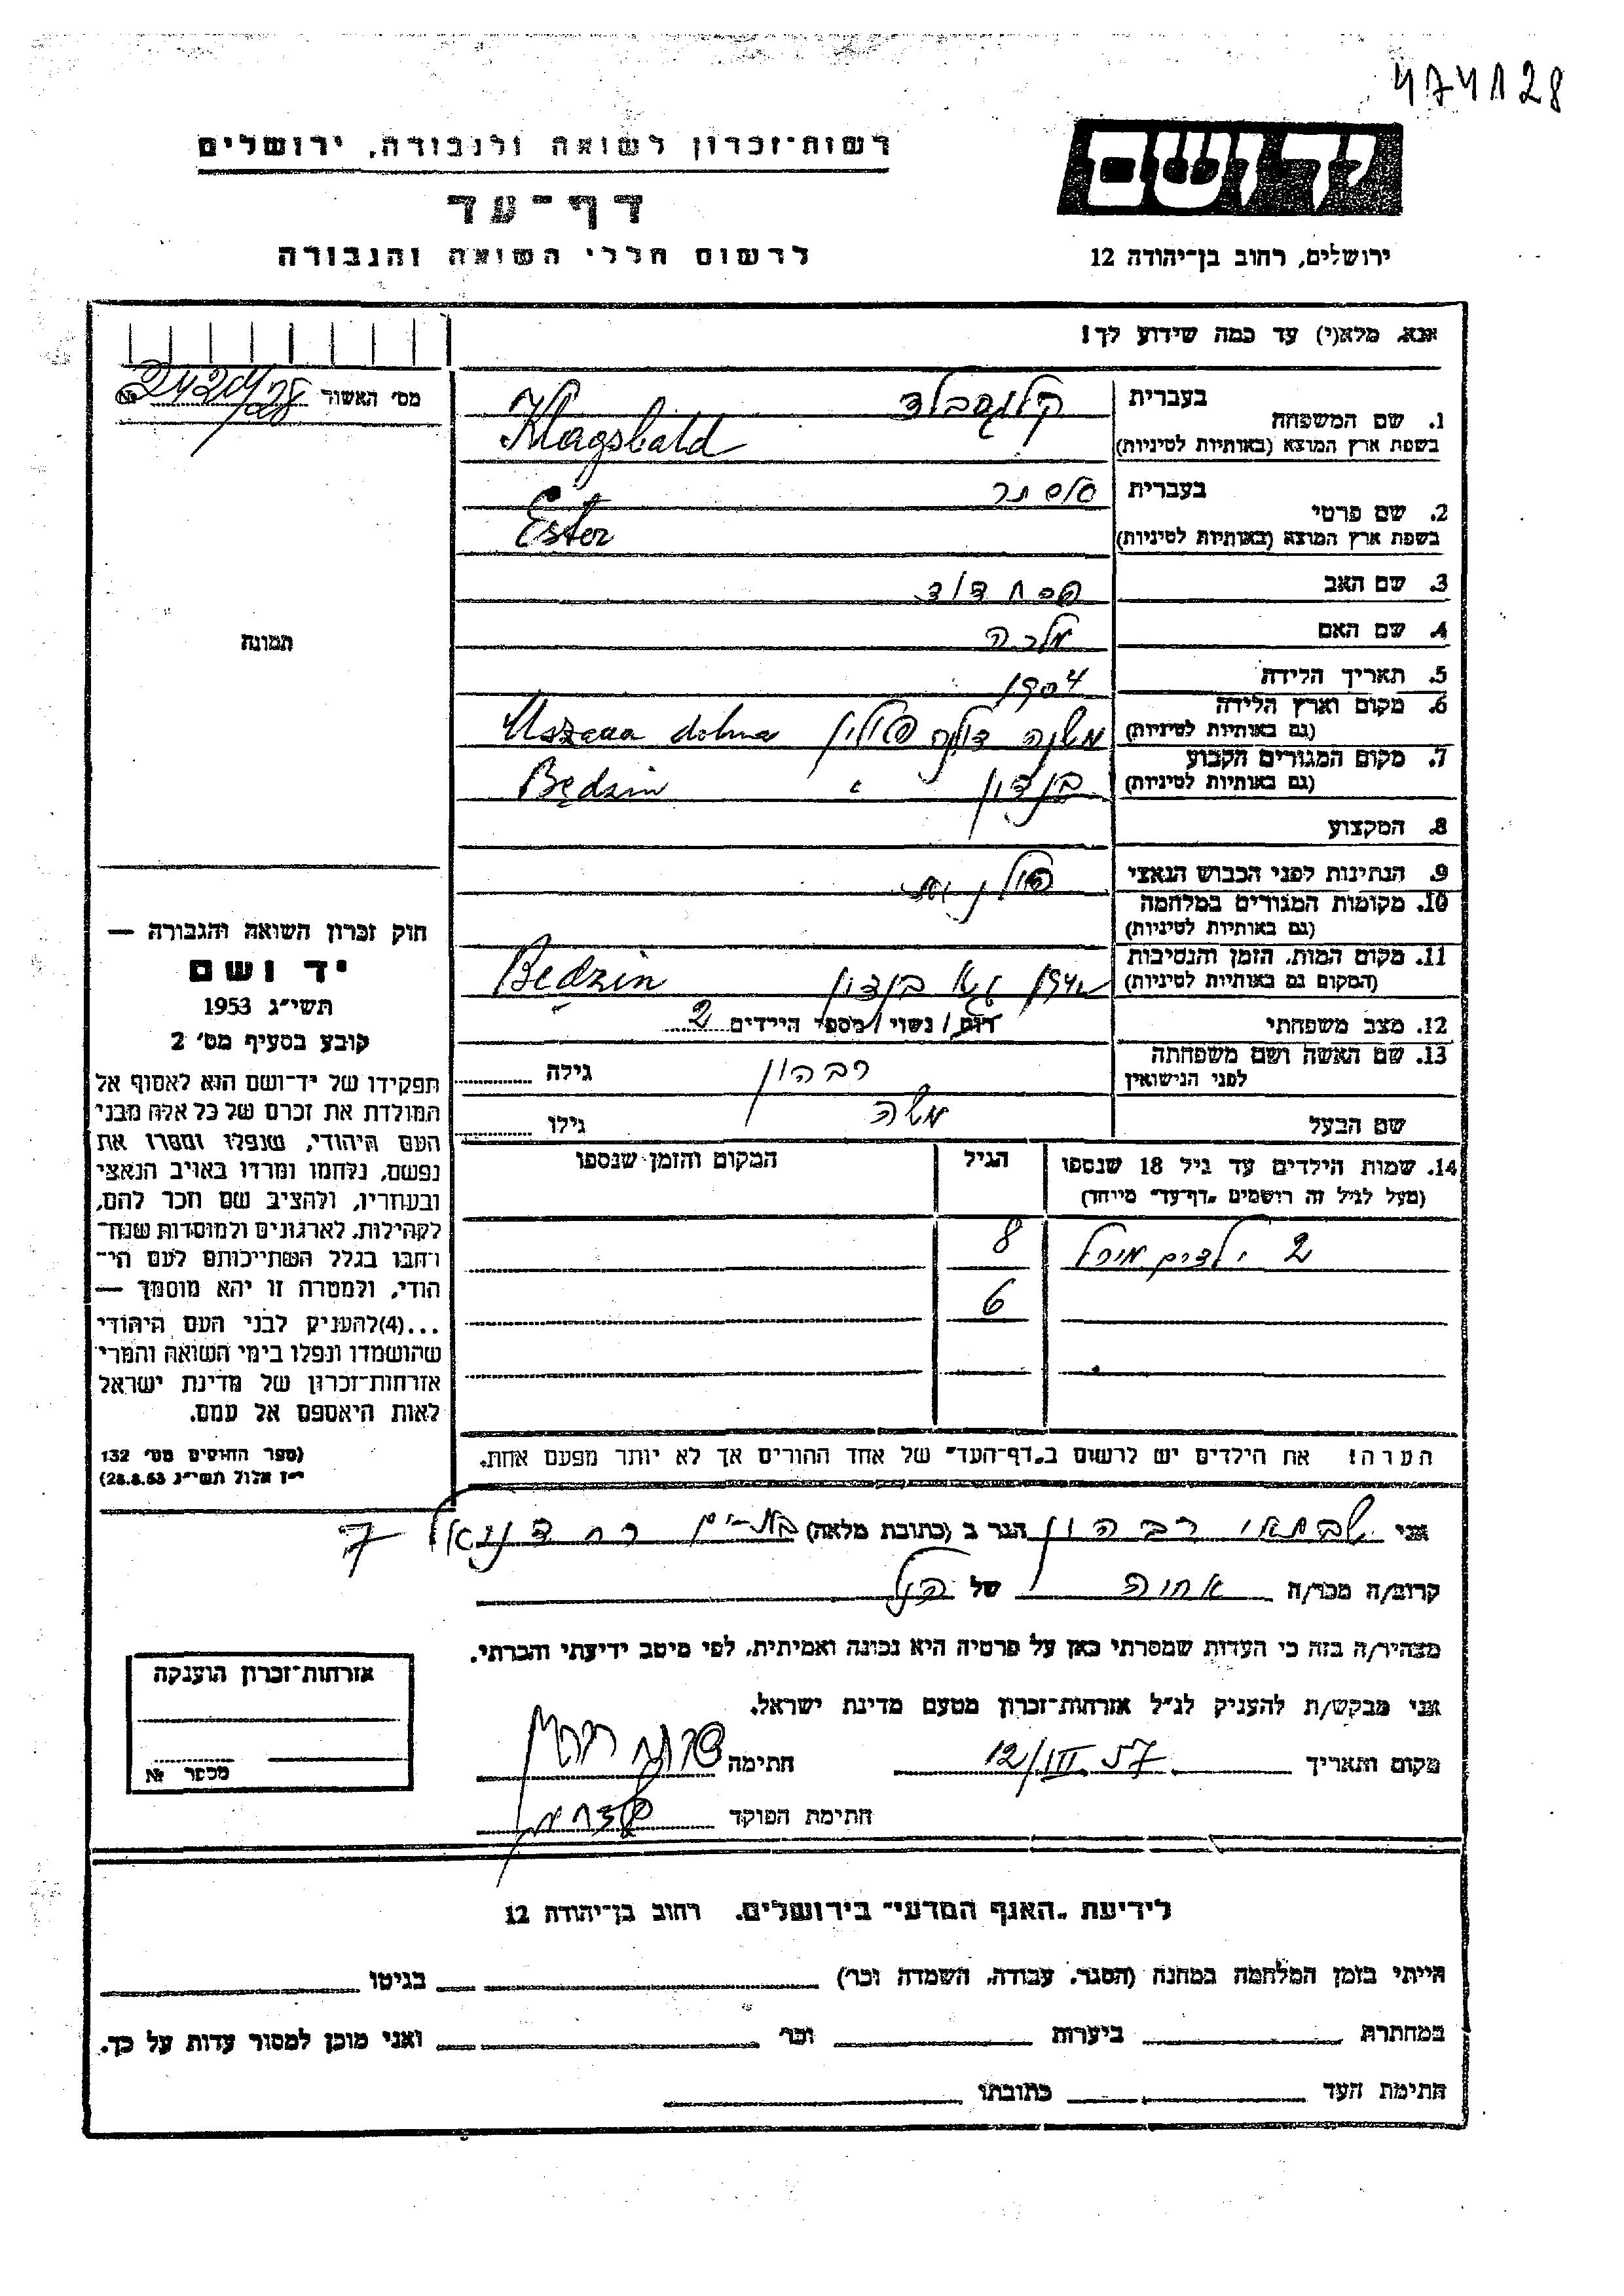 474128
רשות־זכרון לשואה ולגבורה, ירושלים
ידושם
דף־עד
לרשום חללי השואה והגבורה
ירושלים, רחוב בן־יהודה 12
אנא, מלא(י) עד כמה שידוע לך!
מס' האשור №
בעברית קלגסבלד
1. שם המשפחה
בשפת ארץ המוצא (באותיות לטיניות) Klagsbald
בעברית אסתר
2. שם פרטי
בשפת ארץ המוצא (באותיות לטיניות) Ester
3. שם האב פסח דוד
4. שם האם מלכה
תמונה
5. תאריך הלידה 1904
6. מקום וארץ הלידה
(גם באותיות לטיניות) פולין dolna
7. מקום המגורים הקבוע
(גם באותיות לטיניות) בנדין " Będzin
8. המקצוע
9. הנתינות לפני הכבוש הנאצי פולנית
10. מקומות המגורים במלחמה
(גם באותיות לטיניות)
11. מקום המות, הזמן והנסיבות
(המקום גם באותיות לטיניות) בנדין Będzin
12. מצב משפחתי רווק / נשוי / מספר הילדים 2
13. שם האשה ושם משפחתה
לפני הנישואין רבהון גילה
שם הבעל משה גילו
14. שמות הילדים עד גיל 18 שנספו הגיל המקום והזמן שנספו
(מעל לגיל זה רושמים "דף־עד" מיוחד)
2 ילדים 8
6
הערה: את הילדים יש לרשום ב"דף־העד" של אחד ההורים אך לא יותר מפעם אחת.
חוק זכרון השואה והגבורה —
יד ושם
תשי"ג 1953
קובע בסעיף מס' 2
תפקידו של יד־ושם הוא לאסוף אל
המולדת את זכרם של כל אלה מבני
העם היהודי, שנפלו ומסרו את
נפשם, נלחמו ומרדו באויב הנאצי
ובעוזריו, ולהציב שם וזכר להם,
לקהילות, לארגונים ולמוסדות שנח־
רבו בגלל השתייכותם לעם הי־
הודי, ולמטרה זו יהא מוסמך —
...(4)להעניק לבני העם היהודי
שהושמדו ונפלו בימי השואה והמרי
אזרחות־זכרון של מדינת ישראל
לאות היאספם אל עמם.
(ספר החוקים מס' 132
י"ז אלול תשי"ג 28.8.53)
אני שבתאי רבהון הגר ב (כתובת מלאה) בת־ים רח דניאל 7
קרוב/ה מכר/ה אחיה של הנ"ל
מצהיר/ה בזה כי העדות שמסרתי כאן על פרטיה היא נכונה ואמיתית, לפי מיטב ידיעתי והכרתי.
אני מבקש/ת להעניק לנ"ל אזרחות־זכרון מטעם מדינת ישראל.
מקום ותאריך 12/III 57 חתימה
חתימת הפוקד
אזרחות־זכרון הוענקה
מספר №
לידיעת "האגף המדעי" בירושלים, רחוב בן־יהודה 12
הייתי בזמן המלחמה במחנה (הסגר, עבודה, השמדה וכו') בגיטו
במחתרת ביערות וכו' ואני מוכן למסור עדות על כך.
חתימת העד כתובתו